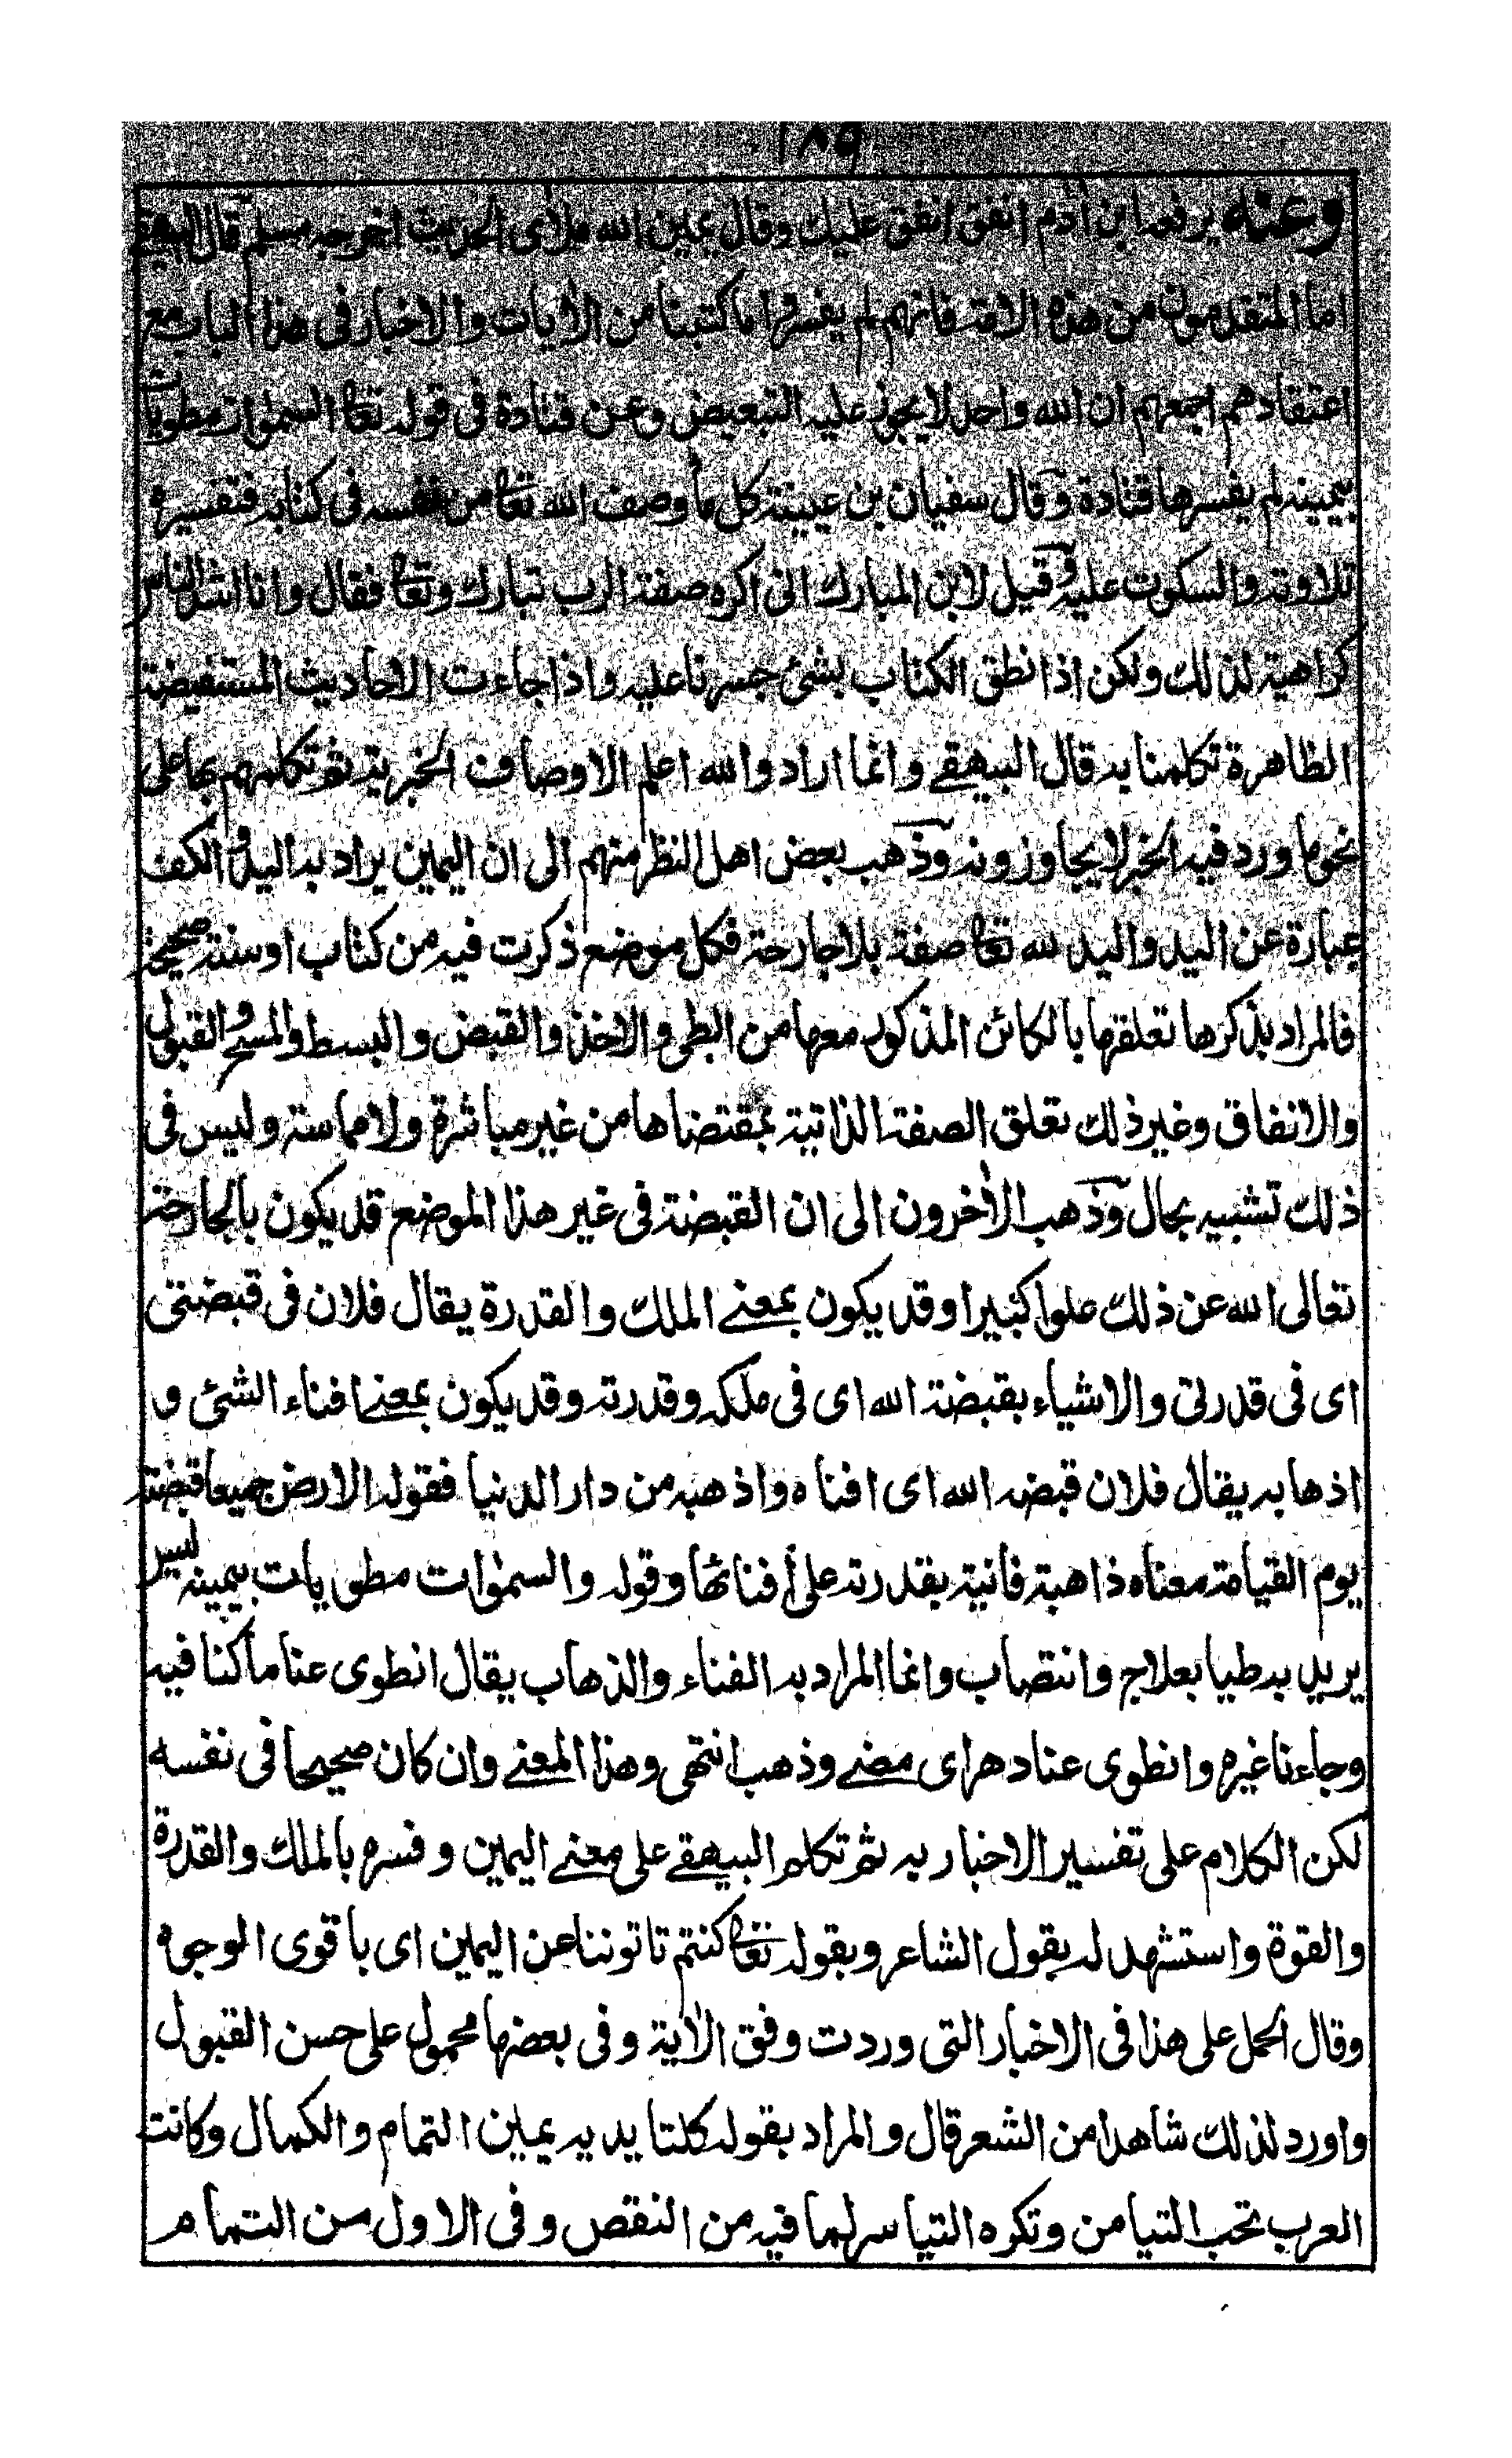 ١٨٩
وعنه يرفعه ابن اٰدم انفق انفق عليك وقال يمين الله ملأى الحديث اخرجه مسلم قال البيهقي
اما المتقدمون من هذه الامة فانهم لم يفسروا ما كتبنا من الاٰيات والاخبار فى هذا الباب مع
اعتقادهم اجمعهم ان الله واحد لا يجوز عليه التبعيض وعن قتادة فى قوله تعا السمٰوات مطويات
بيمينه لم يفسرها قتادة وقال سفيان بن عيينة كل ما وصف الله تعا من نفسه فى كتابه فتفسيره
تلاوته والسكوت عليه وقيل لابن المبارك انى اكره صفة الرب تبارك وتعا فقال وانا اشد الناس
كراهية لذلك ولكن اذا نطق الكتاب بشئ جسرنا عليه واذا جاءت الاحاديث المستفيضة
الظاهرة تكلمنا به قال البيهقے وانما اراد والله اعلم الاوصاف الخبرية ثم تكلمهم بها على
نحو ما ورد فيه الخبر لا يجاوزونه وذهب بعض اهل النظر منهم الى ان اليمين يراد به اليد والكف
عبارة عن اليد واليد لله تعا صفة بلا جارحة فكل موضع ذكرت فيه من كتاب او سنة صحيحة
فالمراد بذكرها تعلقها بالكائن المذكور معها من الطى والاخذ والقبض والبسط والمسح والقبول
والانفاق وغير ذلك تعلق الصفة الذاتية بمقتضاها من غير مباشرة ولا مماسة وليس فى
ذلك تشبيه بحال وذهب الاٰخرون الى ان القبضة فى غير هذا الموضع قد يكون بالجارحة
تعالى الله عن ذلك علوا كبيرا وقد يكون بمعنے الملك والقدرة يقال فلان فى قبضتى
اى فى قدرتى والاشياء بقبضة الله اى فى ملكه وقدرته وقد يكون بمعنے افناء الشئ و
اذهابه يقال فلان قبضه الله اى افناه واذهبه من دار الدنيا فقوله الارض جميعا قبضته
يوم القيامة معناه ذاهبة فانية بقدرته على افنائها وقوله والسمٰوات مطويات بيمينه ليس
يريد به طيا بعلاج وانتصاب وانما المراد به الفناء والذهاب يقال انطوى عنا ما كنا فيه
وجاءنا غيره وانطوى عنا دهر اى مضے وذهب انتهى وهذا المعنے وان كان صحيحا فى نفسه
لكن الكلام على تفسير الاخبار به ثم تكلم البيهقے على معنے اليمين وفسره بالملك والقدرة
والقوة واستشهد له بقول الشاعر وبقوله تعا كنتم تاتوننا عن اليمين اى باقوى الوجوه
وقال الحمل على هذا فى الاخبار التى وردت وفق الاٰية وفى بعضها محمول على حسن القبول
واورد لذلك شاهدا من الشعر قال والمراد بقوله كلتا يديه يمين التمام والكمال وكانت
العرب تحب التيامن وتكره التياسر لهما فيه من النقص وفى الاول من التمام